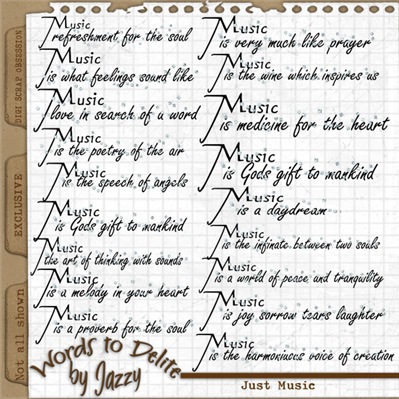 Music
refreshment for the soul
Music
is what feelings sound like
Music
love in search of a word
Music
is the poetry of the air
Music
is the speech of angels
Music
is Gods gift to mankind
Music
the art of thinking with sounds
Music
is a melody in your heart
Music
is a proverb for the soul
Music
is very much like prayer
Music
is the wine which inspires us
Music
is medicine for the heart
Music
is Gods gift to mankind
Music
is a daydream
Music
is the infinate between two souls
Music
is a world of peace and tranquility
Music
is joy sorrow tears laughter
Music
is the harmonious voice of creation
DIGI SCRAP OBSESSION
EXCLUSIVE
Not all shown
Words to Delite
by Jazzy
Just Music